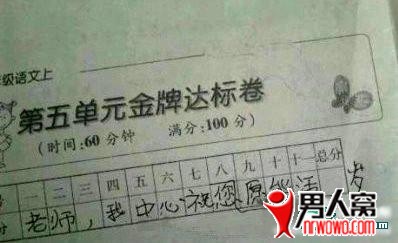 级语文上
第五单元金牌达标卷
(时间:60分钟 满分:100分)
一 二 三 四 五 六 七 八 九 十 十一 总分
分 老师,我中心祝您 活 岁
男人窝
nrwowo.com